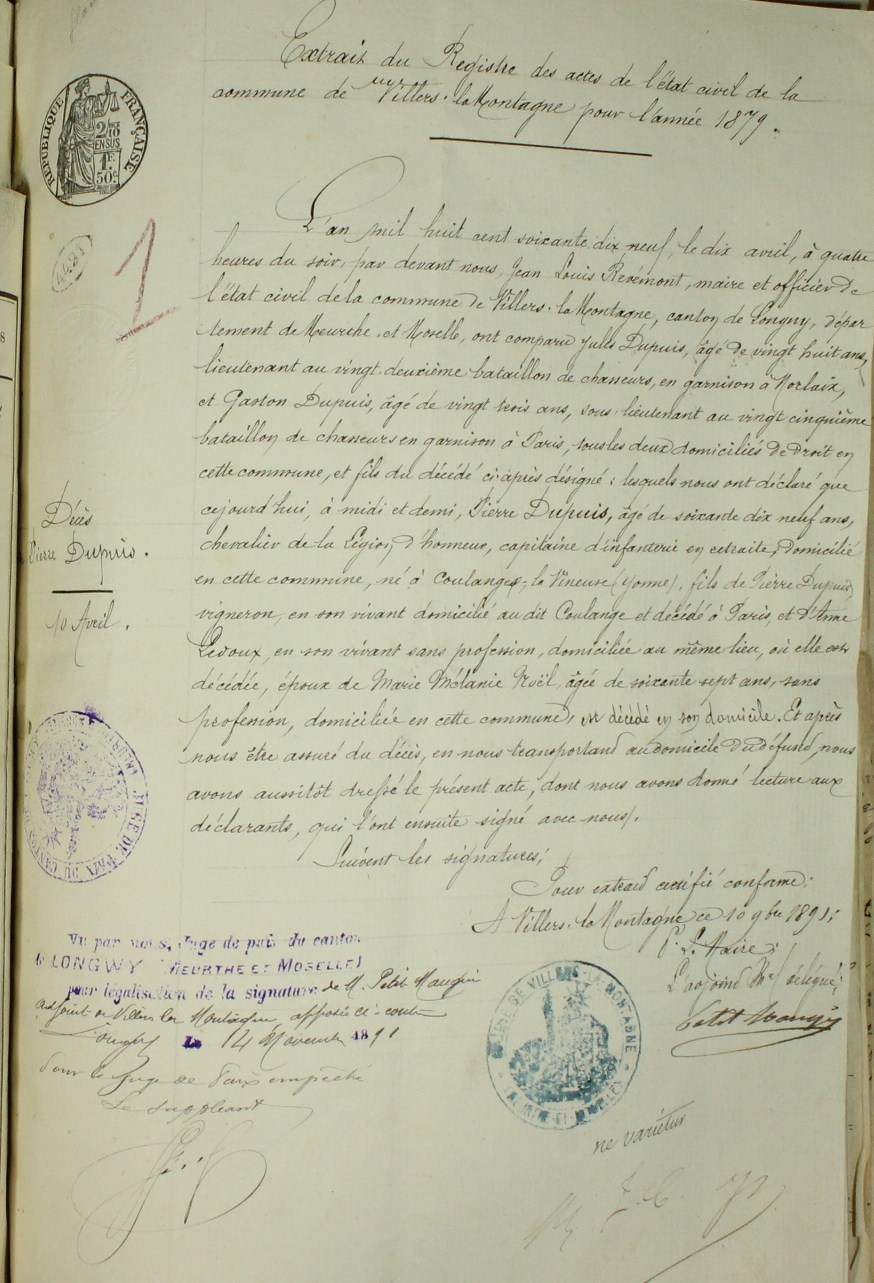 Extrait du Registre des actes de l'état civil de la
commune de Villers-la-Montagne pour l'année 1879.
RÉPUBLIQUE FRANÇAISE
2/10
EN SUS
1F
50c
1
L'an mil huit cent soixante dix neuf, le dix avril, à quatre
heures du soir, par devant nous, Jean Louis Revémont, maire et officier de
l'état civil de la commune de Villers-la-Montagne, canton de Longwy, dépar
tement de Meurthe-et-Moselle, ont comparu Jules Dupuis, âgé de vingt huit ans,
lieutenant au vingt-deuxième bataillon de chasseurs, en garnison à Morlaix,
et Gaston Dupuis, âgé de vingt trois ans, sous-lieutenant au vingt cinquième
bataillon de chasseurs en garnison à Paris, tous les deux domiciliés de droit en
cette commune, et fils du décédé ci-après désigné: lesquels nous ont déclaré que
cejourd'hui, à midi et demi, Pierre Dupuis, âgé de soixante dix neuf ans,
chevalier de la Légion d'honneur, capitaine d'infanterie en retraite, domicilié
en cette commune, né à Coulanges-la-Vineuse (Yonne), fils de Pierre Dupuis,
vigneron, en son vivant domicilié au dit Coulange et décédé à Paris, et d'Anne
Ledoux, en son vivant sans profession, domiciliée au même lieu, où elle est
décédée, époux de Marie Mélanie Noël, âgée de soixante sept ans, sans
profession, domiciliée en cette commune, est décédé en son domicile. Et après
nous être assuré du décès, en nous transportand au domicile du défund, nous
avons aussitôt dressé le présent acte, dont nous avons donné lecture aux
déclarants, qui l'ont ensuite signé avec nous.
Suivent les signatures;
Pour extrait certifié conforme:
A Villers-la-Montagne ce 10 9bre 1891;
P. l. Maire;
L'adjoind délégué,
Petit Maugin
Décès
Pierre Dupuis.
10 Avril.
JUGE DE PAIX DU CANTON
Vu par nous, Juge de paix du canton
de LONGWY (MEURTHE ET MOSELLE)
pour légalisation de la signature de M. Petit Maugin
adjoint de Villers la Montagne apposée ci-contre
Longwy le 14 Novembre 1891
Pour le Juge de Paix empêché
Le suppléant
MAIRIE DE VILLERS-LA-MONTAGNE
MEURTHE-ET-MOSELLE
ne varietur